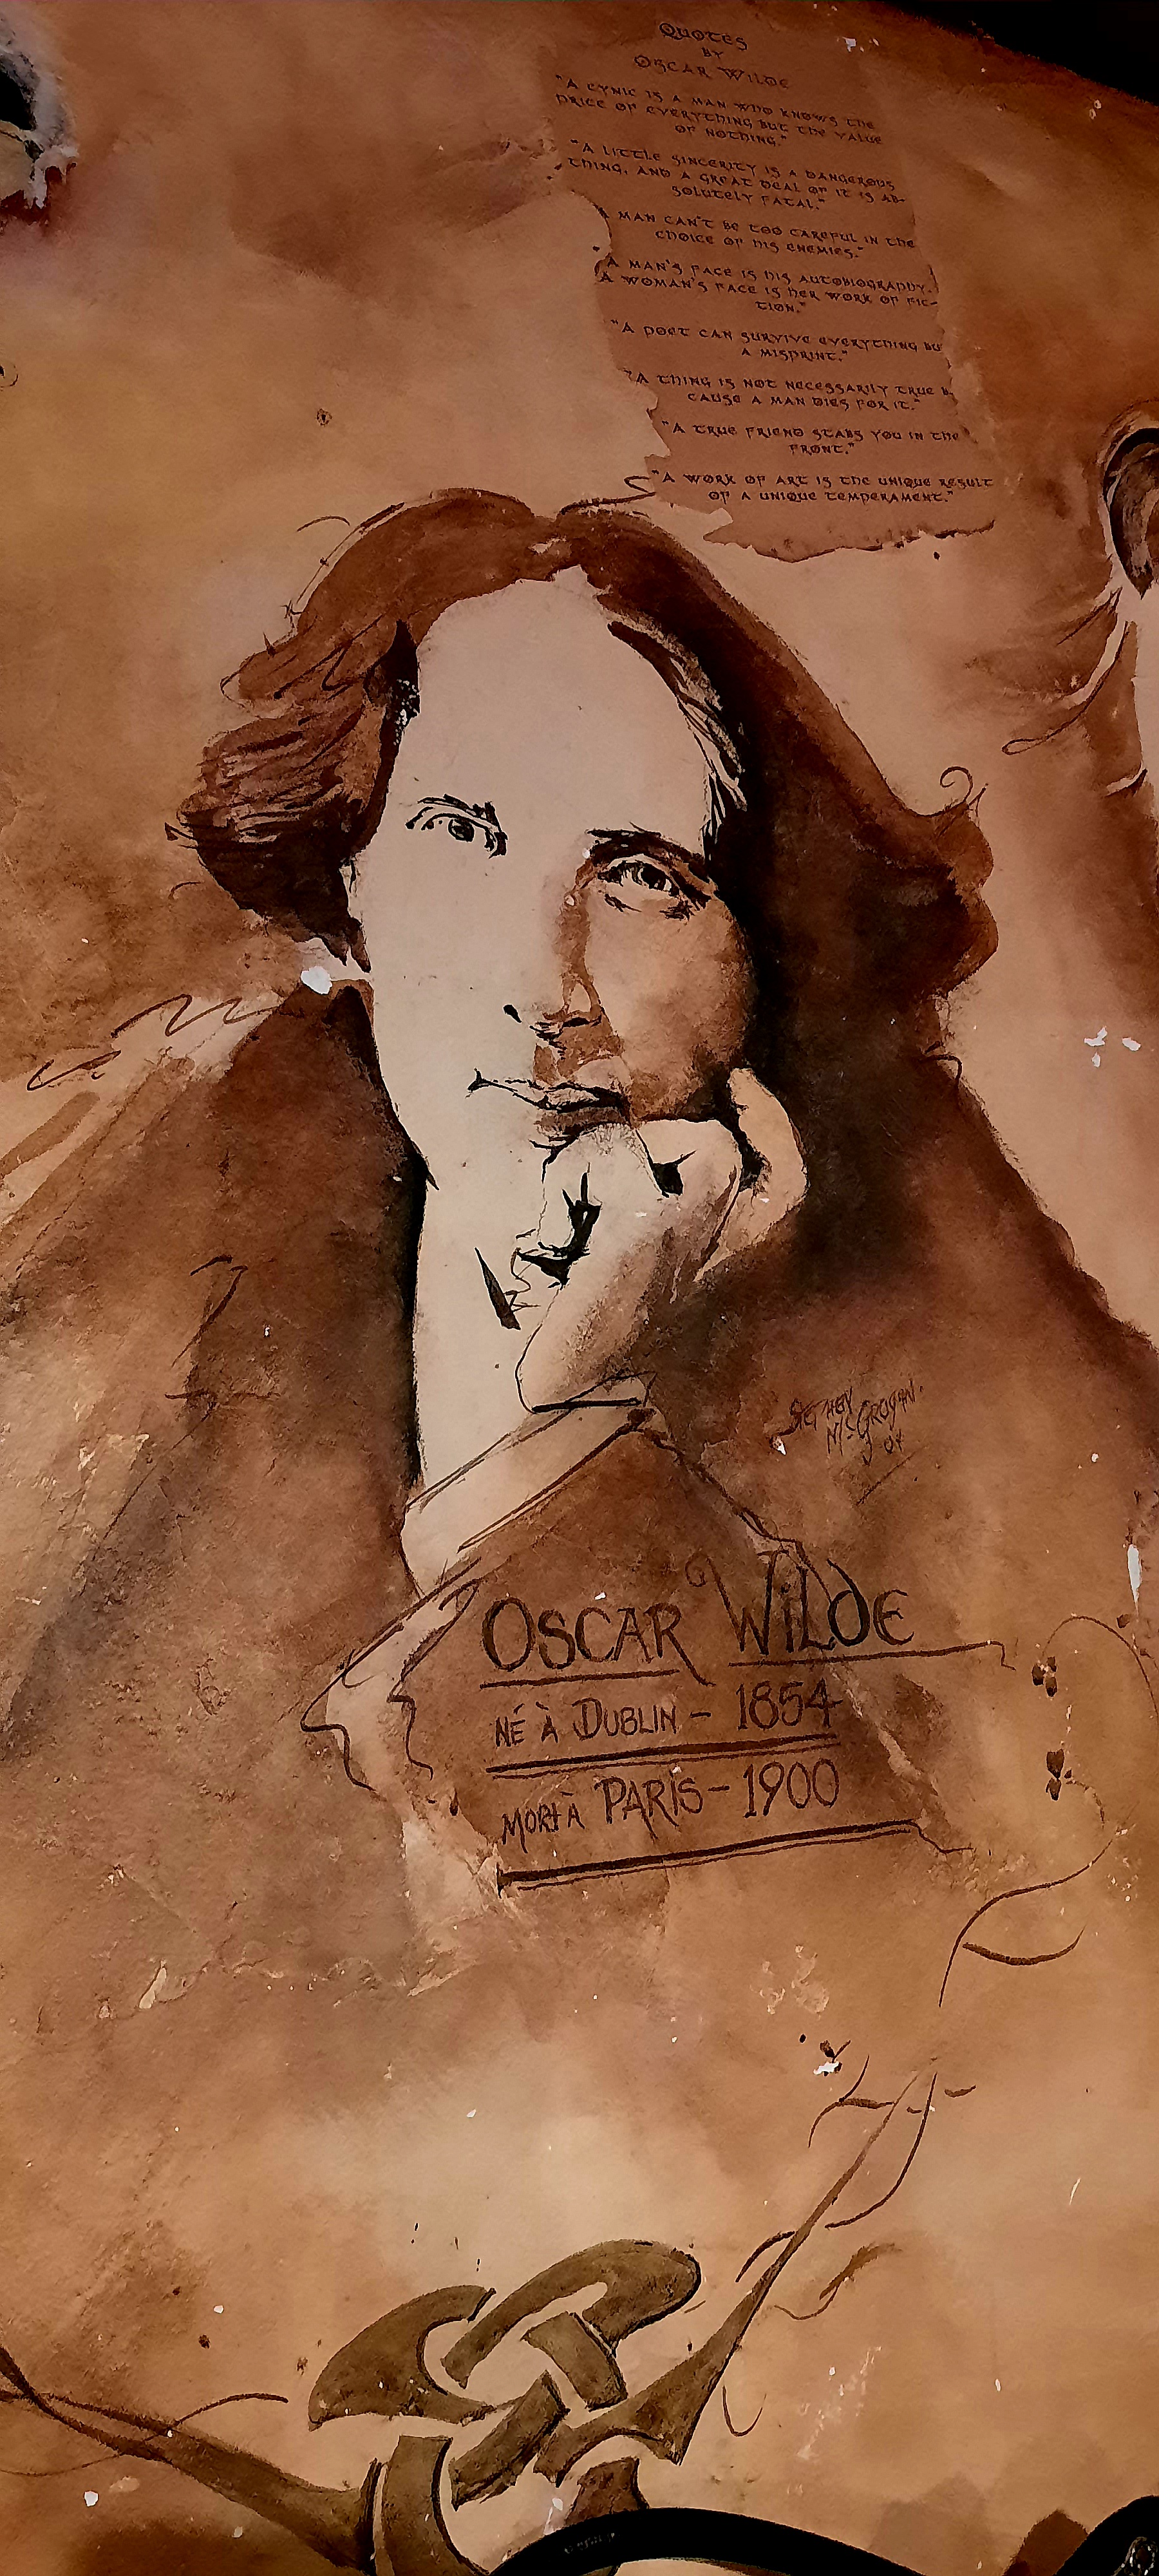 QUOTES
BY
OSCAR WILDE
"A CYNIC IS A MAN WHO KNOWS THE
PRICE OF EVERYTHING BUT THE VALUE
OF NOTHING."
"A LITTLE SINCERITY IS A DANGEROUS
THING, AND A GREAT DEAL OF IT IS AB-
SOLUTELY FATAL."
A MAN CAN'T BE TOO CAREFUL IN THE
CHOICE OF HIS ENEMIES."
"A MAN'S FACE IS HIS AUTOBIOGRAPHY.
A WOMAN'S FACE IS HER WORK OF FIC-
TION."
"A POET CAN SURVIVE EVERYTHING BU
A MISPRINT."
"A THING IS NOT NECESSARILY TRUE B
CAUSE A MAN DIES FOR IT."
"A TRUE FRIEND STABS YOU IN THE
FRONT."
"A WORK OF ART IS THE UNIQUE RESULT
OF A UNIQUE TEMPERAMENT."
McGROGAN.
04
OSCAR WILDE
NÉ À DUBLIN - 1854
MORT À PARIS - 1900